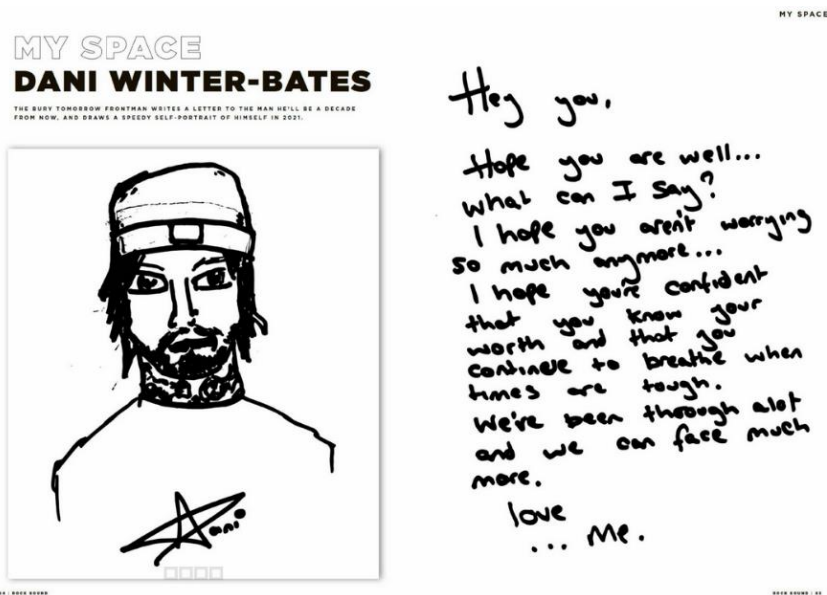 MY SPACE
MY SPACE
DANI WINTER-BATES
THE BURY TOMORROW FRONTMAN WRITES A LETTER TO THE MAN HE'LL BE A DECADE
FROM NOW, AND DRAWS A SPEEDY SELF-PORTRAIT OF HIMSELF IN 2021.
Dani
Hey you,
Hope you are well...
what can I say?
I hope you aren't worrying
so much anymore...
I hope you're confident
that you know your
worth and that you
continue to breathe when
times are tough.
We're been through alot
and we can face much
more.
love
... Me.
ROCK SOUND
ROCK SOUND